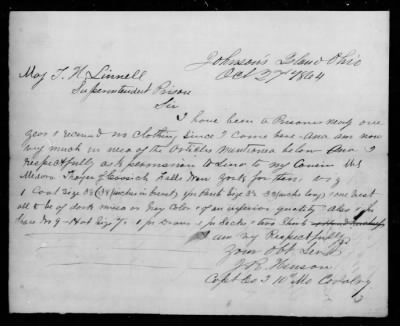 Johnson's Island Ohio
Oct 27th 1864
Maj T. H. Linnell
Superintendent Prison
Sir
I have been a Prisoner nearly one
year & received no clothing since I came here and am now
very much in need of the Articles mentioned below and I
Respectfully ask permission to send to my Cousin
New York for them viz
1 Coat size 38 (38 inches in breast) 1 pr Pants size 32 (32 inches long) one Vest
all to be of dark mixed or Grey color & of an inferior quality also 1 pr
Shoes No 9 1 Hat Size 7 1 pr Drawers 1 pr Socks & two Shirts
I am very Respectfully
Your Obt Servt
J. R. Hinson
Capt Co I 10 Mo Cavalry